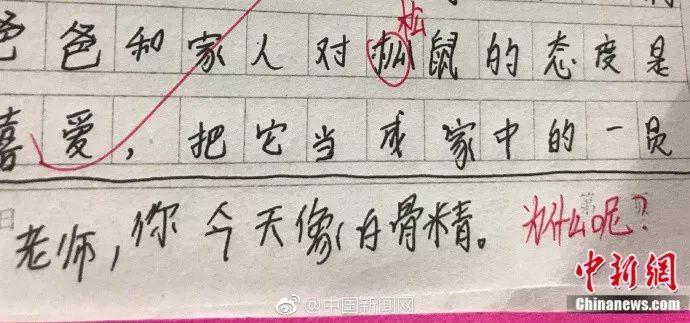 松
爸爸和家人对松鼠的态度是
喜爱，把它当成家中的一员
日
第
老师，你今天像白骨精。 为什么呢？
@中国新闻网
中新網
Chinanews.com